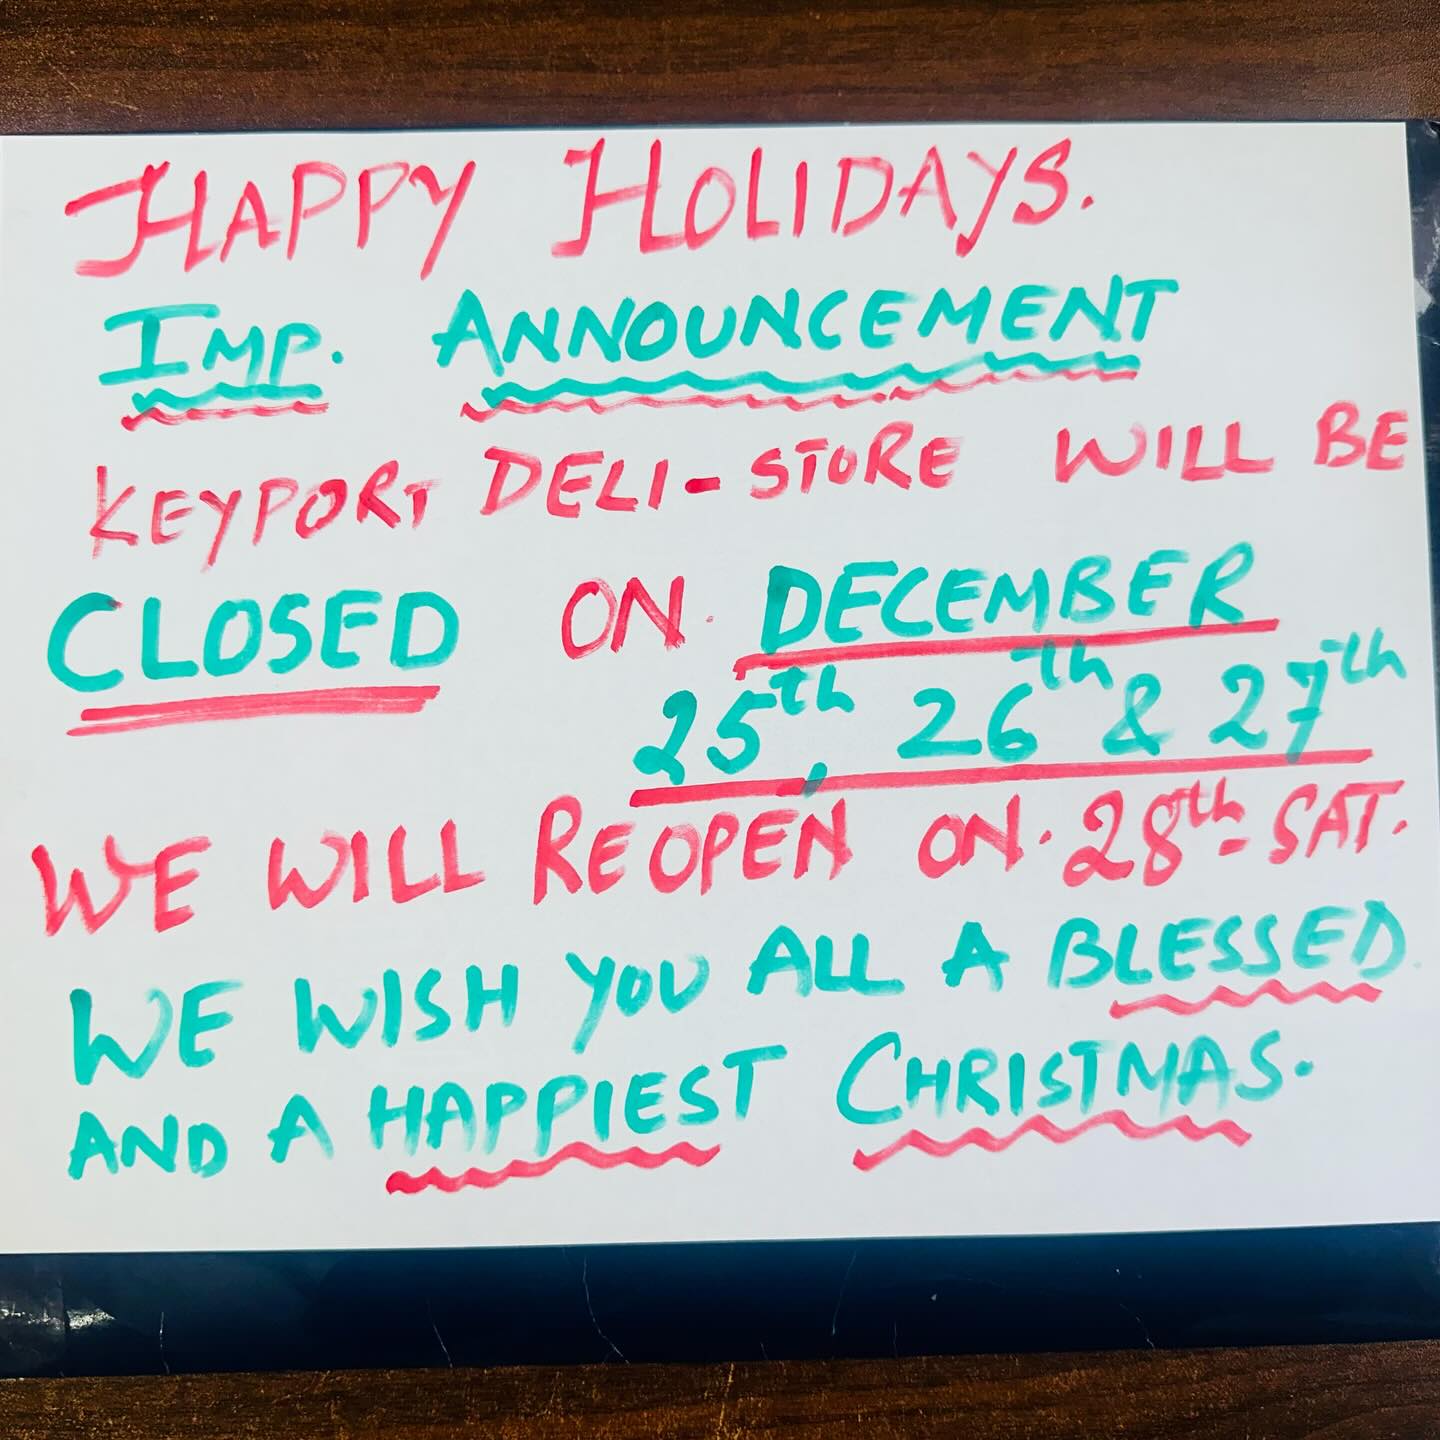 HAPPY HOLIDAYS.
IMP. ANNOUNCEMENT
KEYPORT DELI-STORE WILL BE
CLOSED ON DECEMBER
25th, 26th & 27th
WE WILL REOPEN ON 28th-SAT.
WE WISH YOU ALL A BLESSED
AND A HAPPIEST CHRISTMAS.